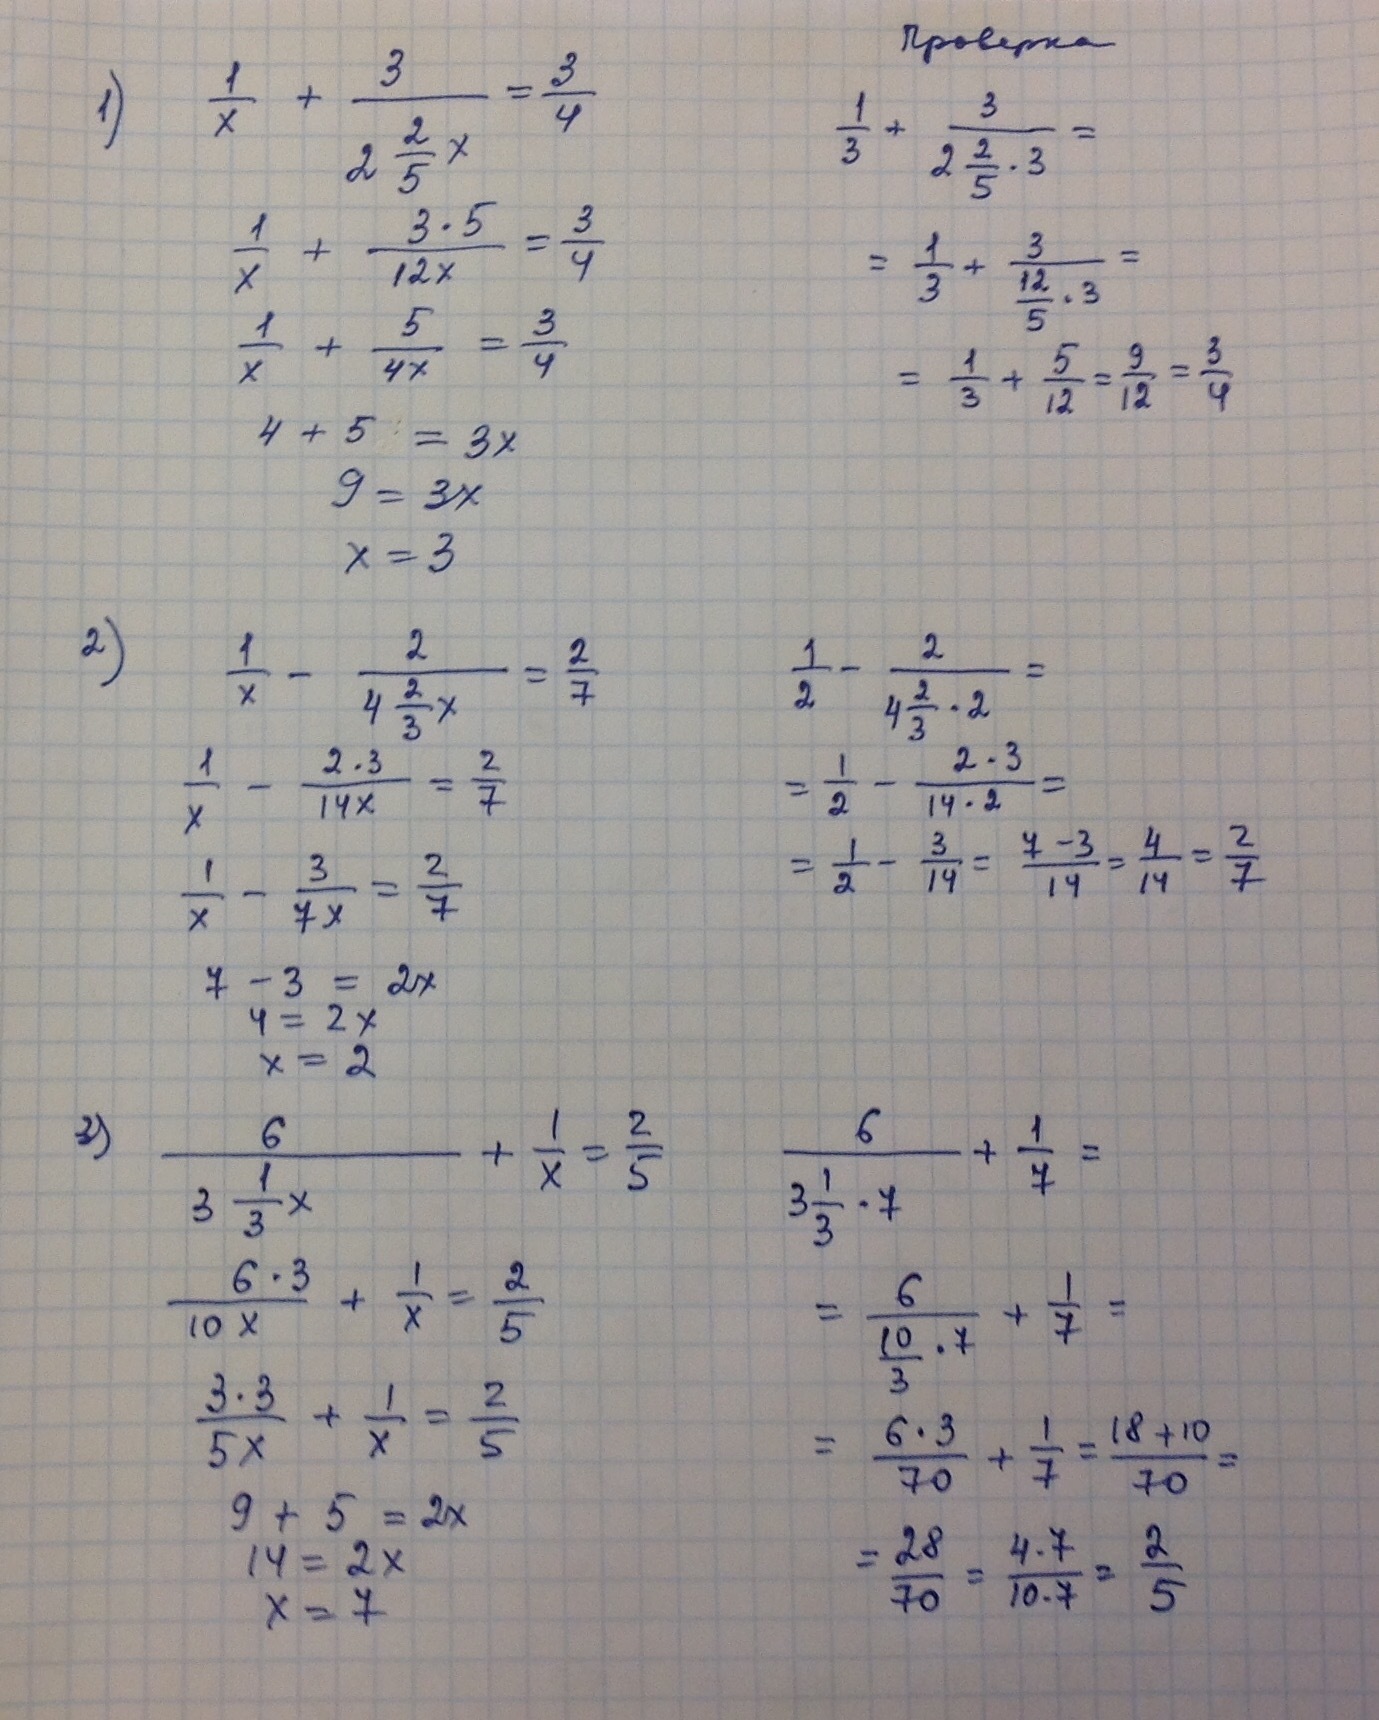 Проверка
1) 1/x + 3/(2 2/5 x) = 3/4
1/x + 3·5/12x = 3/4
1/x + 5/4x = 3/4
4 + 5 = 3x
9 = 3x
x = 3
1/3 + 3/(2 2/5 · 3) =
= 1/3 + 3/(12/5 · 3) =
= 1/3 + 5/12 = 9/12 = 3/4
2) 1/x - 2/(4 2/3 x) = 2/7
1/x - 2·3/14x = 2/7
1/x - 3/7x = 2/7
7 - 3 = 2x
4 = 2x
x = 2
1/2 - 2/(4 2/3 · 2) =
= 1/2 - 2·3/14·2 =
= 1/2 - 3/14 = 7-3/14 = 4/14 = 2/7
3) 6/(3 1/3 x) + 1/x = 2/5
6·3/10x + 1/x = 2/5
3·3/5x + 1/x = 2/5
9 + 5 = 2x
14 = 2x
x = 7
6/(3 1/3 · 7) + 1/7 =
= 6/(10/3 · 7) + 1/7 =
= 6·3/70 + 1/7 = 18+10/70 =
= 28/70 = 4·7/10·7 = 2/5